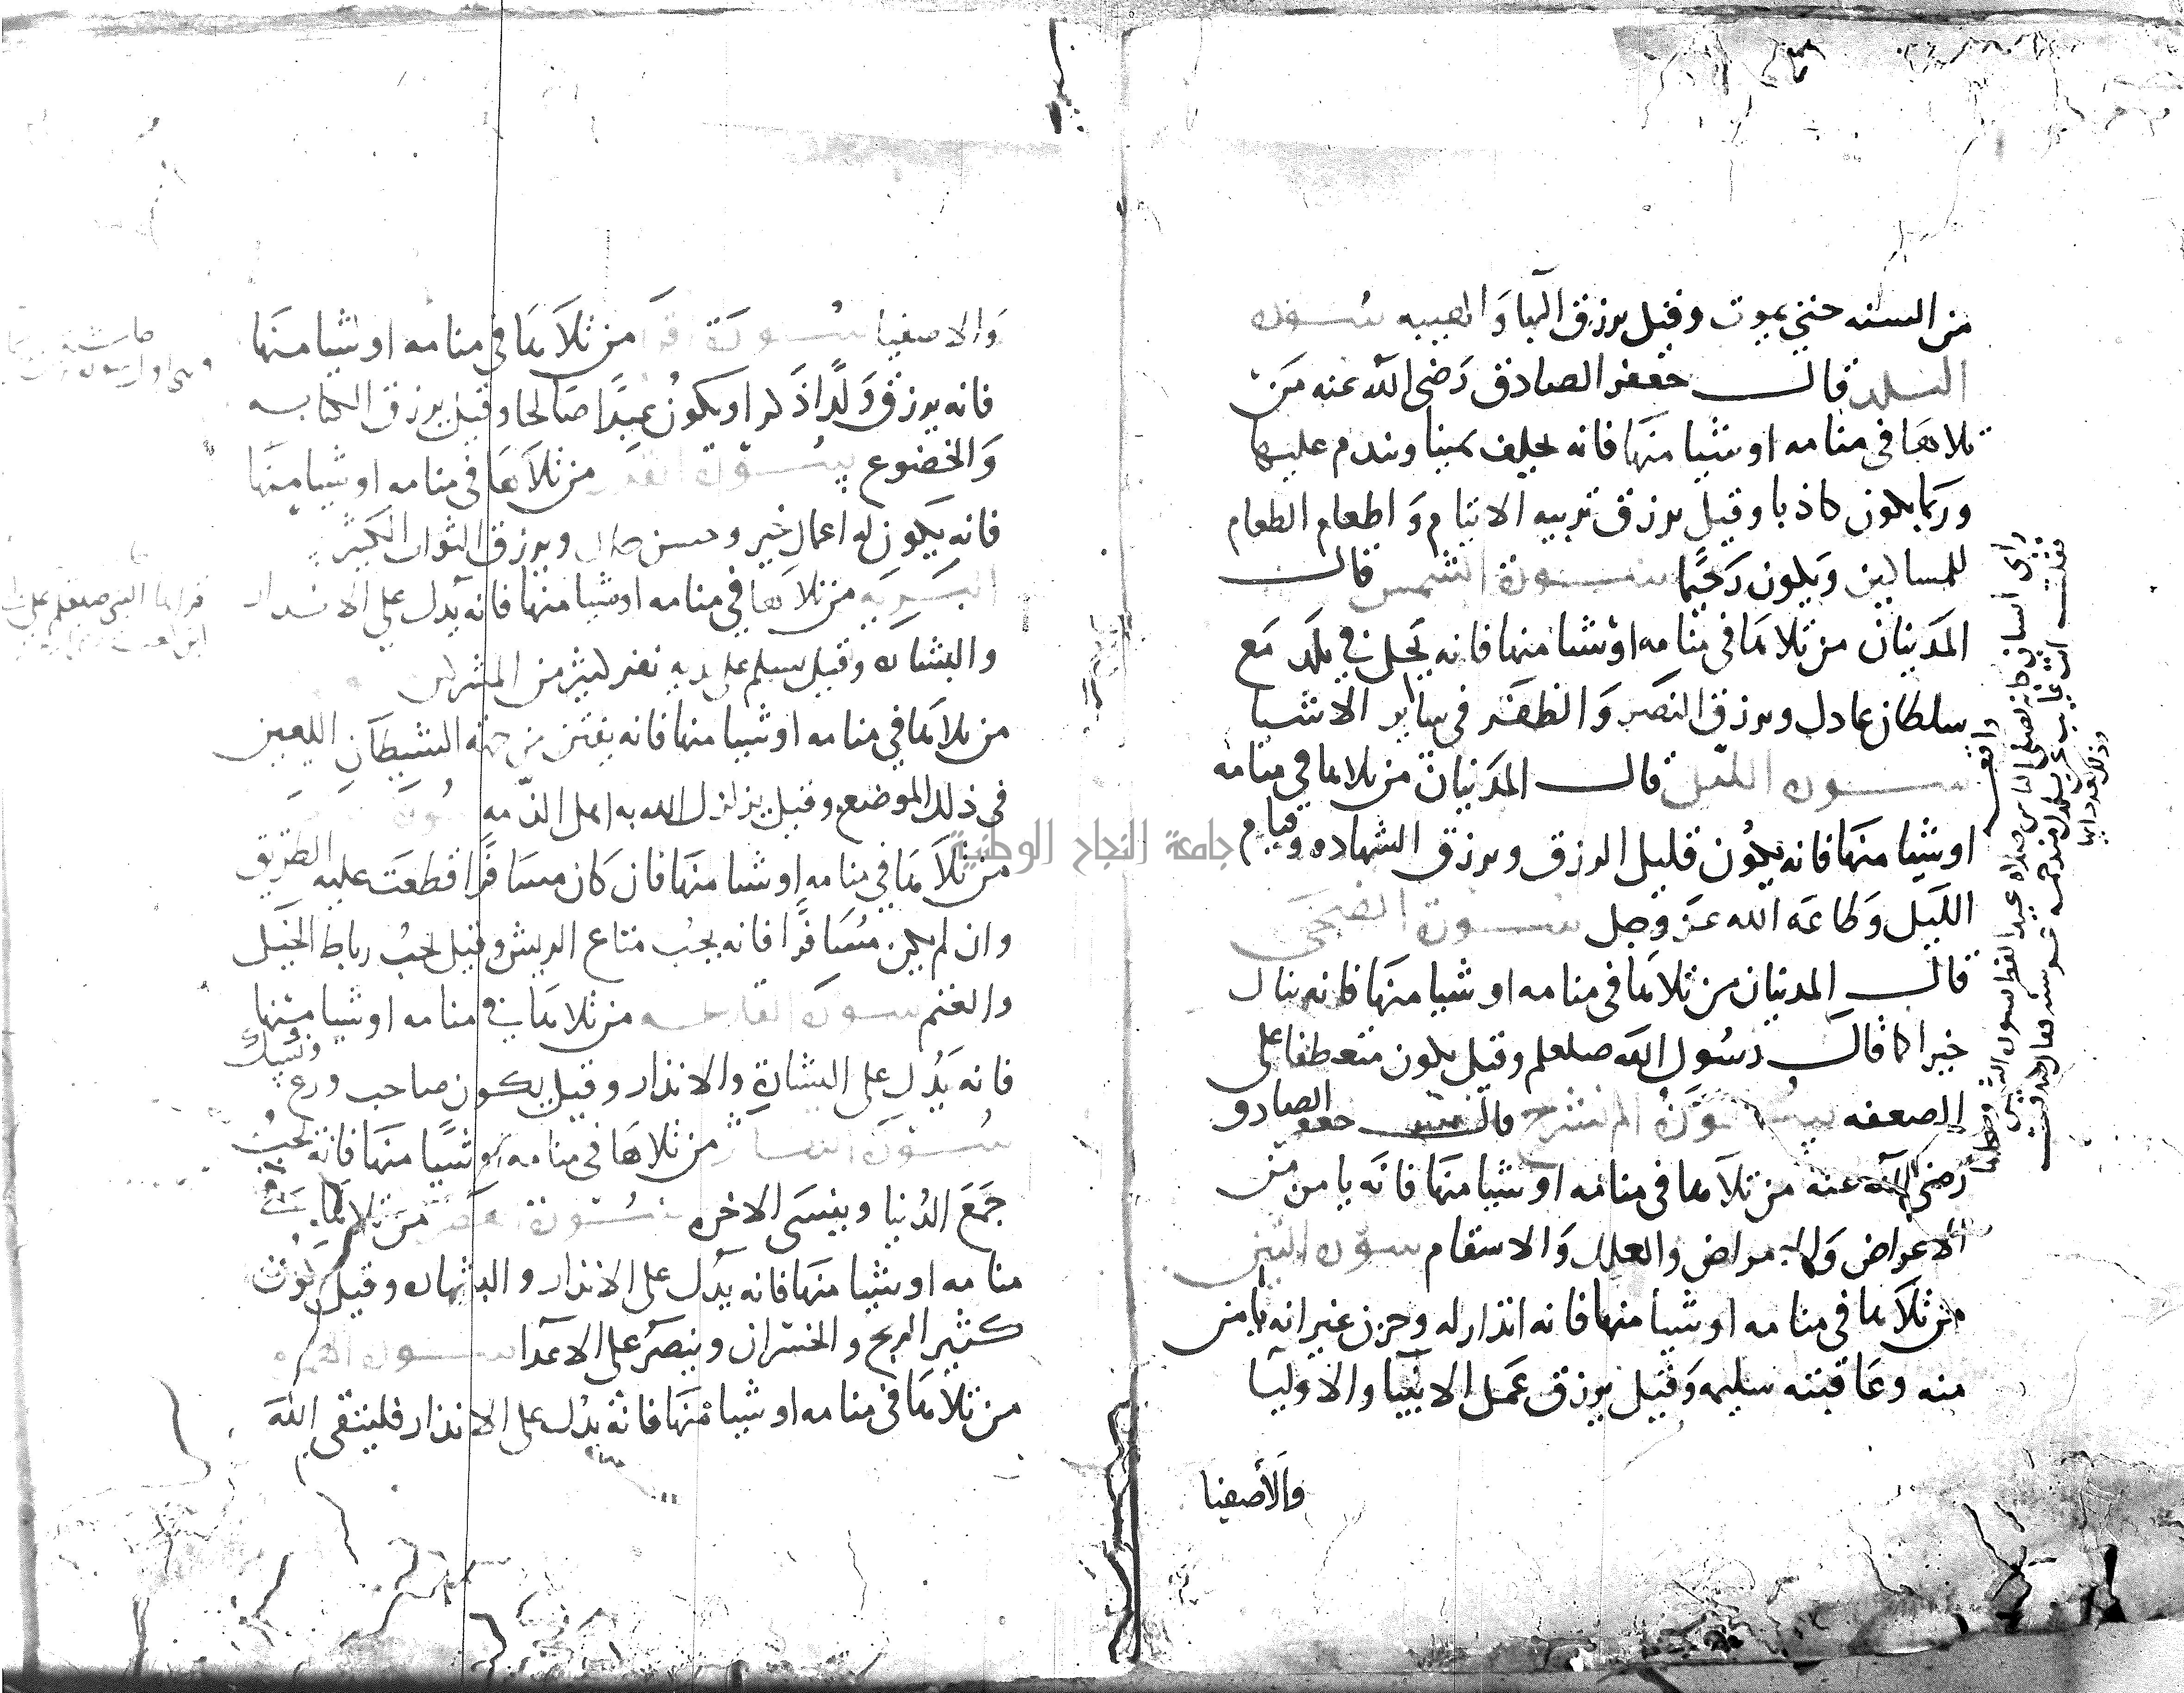 من السنه حتي يموت وقيل يرزق البها والهيبه سوره
البلد قال جعفر الصادق رضى الله عنه من
تلاها فى منامه او شيا منها فانه يحلف يمينا ويندم عليها
وربما يكون كاذبا وقيل يرزق تربيه الايتام واطعام الطعام
للمساكين ويكون رحيما سورة الشمس قال
المدنيان من تلاها فى منامه او شيا منها فانه يحل في بلد مع
سلطان عادل ويرزق النصر والظفر فى ساير الاشيا
سوره الليل قال المدنيان من تلاها في منامه
او شيا منها فانه يكون قليل الرزق ويرزق الشهاده وقيام
الليل وطاعه الله عز وجل سورة الضحى
قال المدنيان من تلاها فى منامه او شيا منها فانه ينال
خيرا كما قال رسول الله صلعلم وقيل يكون متعطفا على
الضعفه سورة الم نشرح قال جعفر الصادق
رضى الله عنه من تلاها فى منامه او شيا منها فانه يامن من
الاعراض والامراض والعلل والاسقام سوره التين
من تلاها فى منامه او شيا منها فانه انذار له وحزن غير انه يامن
منه وعاقبته سليمه وقيل يرزق عمل الانبيا والاوليا
والأصفيا
والاصفيا سورة اقرا من تلاها في منامه او شيا منها
فانه يرزق ولدا ذكرا ويكون عبدا صالحا وقيل يرزق الكتابه
والخضوع سورة القدر من تلاها فى منامه او شيا منها
فانه يكون له اعمال خير وحسن حال ويرزق الثواب الكثير
البريه من تلاها في منامه او شيا منها فانه يدل على الانذار
والبشاره وقيل يسلم على يديه نفر كثير من المشركين
من تلاها في منامه او شيا منها فانه يفتن من جهة الشيطان اللعين
فى ذلك الموضع وقيل يزلزل الله به اهل الذمه سورة
من تلاها في منامه او شيا منها فان كان مسافرا قطعت عليه الطريق
وان لم يكن مسافرا فانه يحب متاع الريش وقيل يحب رباط الخيل
والغنم سوره القارعه من تلاها في منامه او شيا منها
فانه يدل على البشارة والانذار وقيل يكون صاحب ورع ونسك
سورة التكاثر من تلاها فى منامه او شيا منها فانه يحب
جمع الدنيا وينسى الاخره سورة العصر من تلاها في
منامه او شيا منها فانه يدل على الانذار والبشاره وقيل يكون
كثير الربح والخسران وينصر على الاعدا سوره الهمزه
من تلاها فى منامه او شيا منها فانه يدل على الانذار فليتقى الله
جامعة النجاح الوطنية